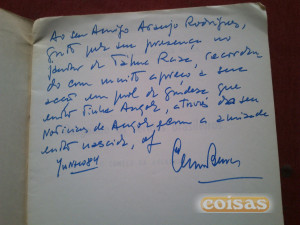 Ao seu Amigo Araujo Rodrigues,
grato por sua presença no
jantar de Tahua Raza, recordan
do com muito apreço a sua
acção em prol do grandeza que
então tinha Angola, através do seu
Notícias de Angola e com a amizade
então nascida, of
Junho 84
coisas